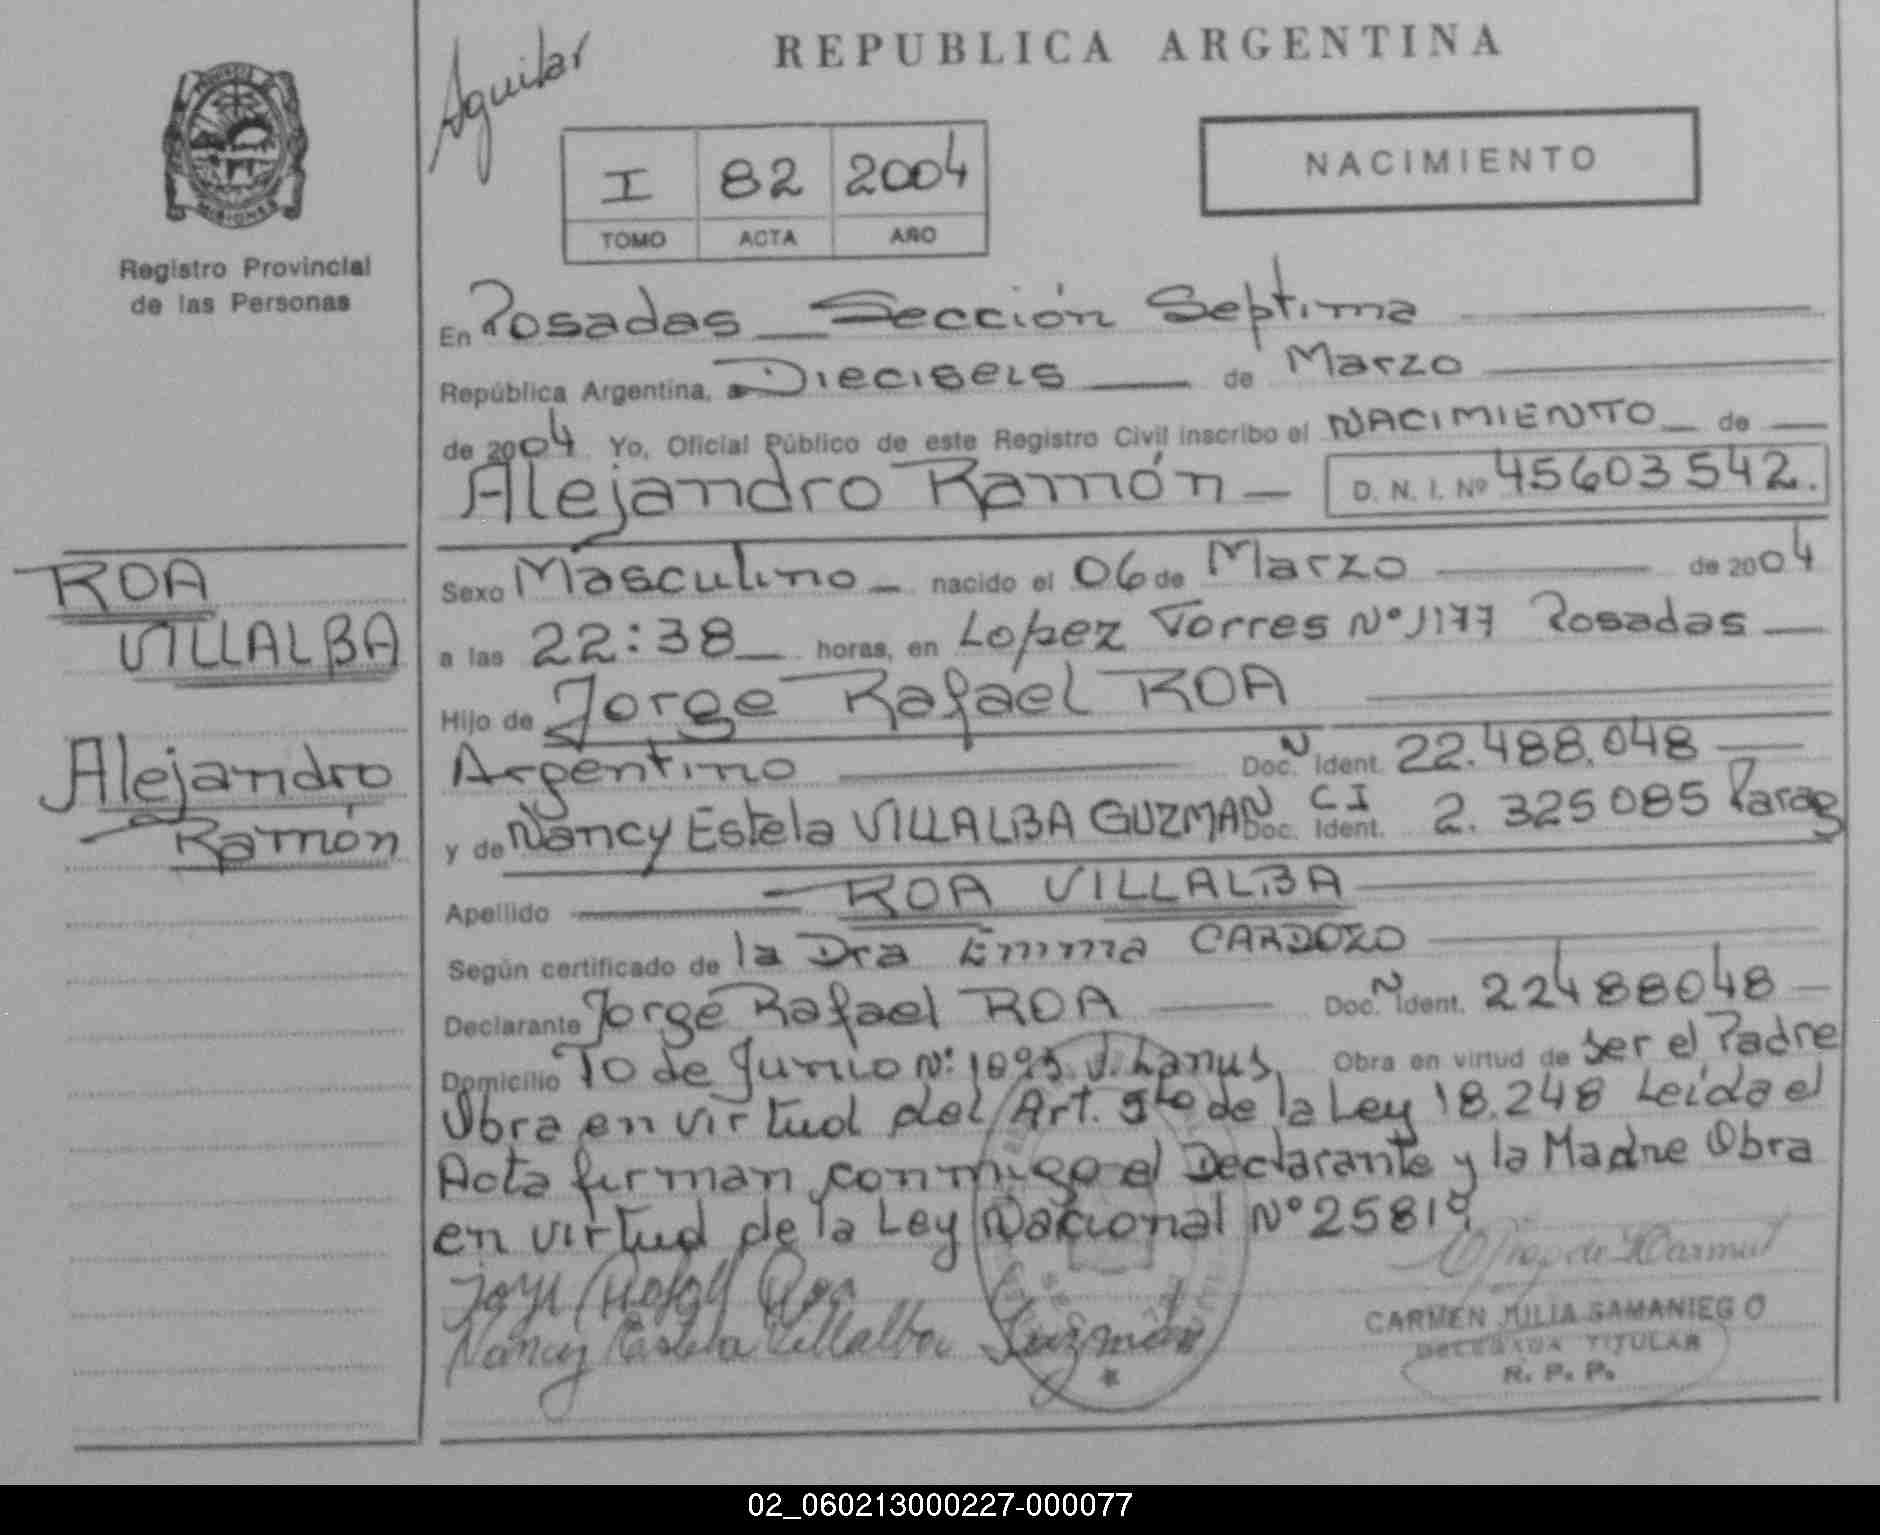 REPUBLICA ARGENTINA
Aguilar
MISIONES
Registro Provincial
de las Personas
I 82 2004
TOMO ACTA AÑO
NACIMIENTO
En Posadas Sección Septima
República Argentina, a Dieciseis de Marzo
de 2004 Yo, Oficial Público de este Registro Civil inscribo el NACIMIENTO de
Alejandro Ramón D. N. I. Nº 45603542.
ROA
VILLALBA
Alejandro
Ramón
Sexo Masculino nacido el 06 de Marzo de 2004
a las 22:38 horas, en Lopez Torres Nº 1177 Posadas
Hijo de Jorge Rafael ROA
Argentino Doc. N Ident. 22.488.048
y de Nancy Estela VILLALBA GUZMAN Doc. N Ident. CI 2.325085 Parag
Apellido ROA VILLALBA
Según certificado de la Dra Emma CARDOZO
Declarante Jorge Rafael ROA Doc. N Ident. 22488048
Domicilio 10 de Junio Nº Lanus Obra en virtud de ser el Padre
Obra en virtud del Art. 5to de la Ley 18.248 Leida el
Acta firman conmigo el Declarante y la Madre Obra
en virtud de la Ley Nacional Nº 25819
Jorge Rafael Roa
Nancy Estela Villalba Guzmán
CARMEN JULIA SAMANIEGO
DELEGADA TITULAR
R. P. P.
02_060213000227-000077